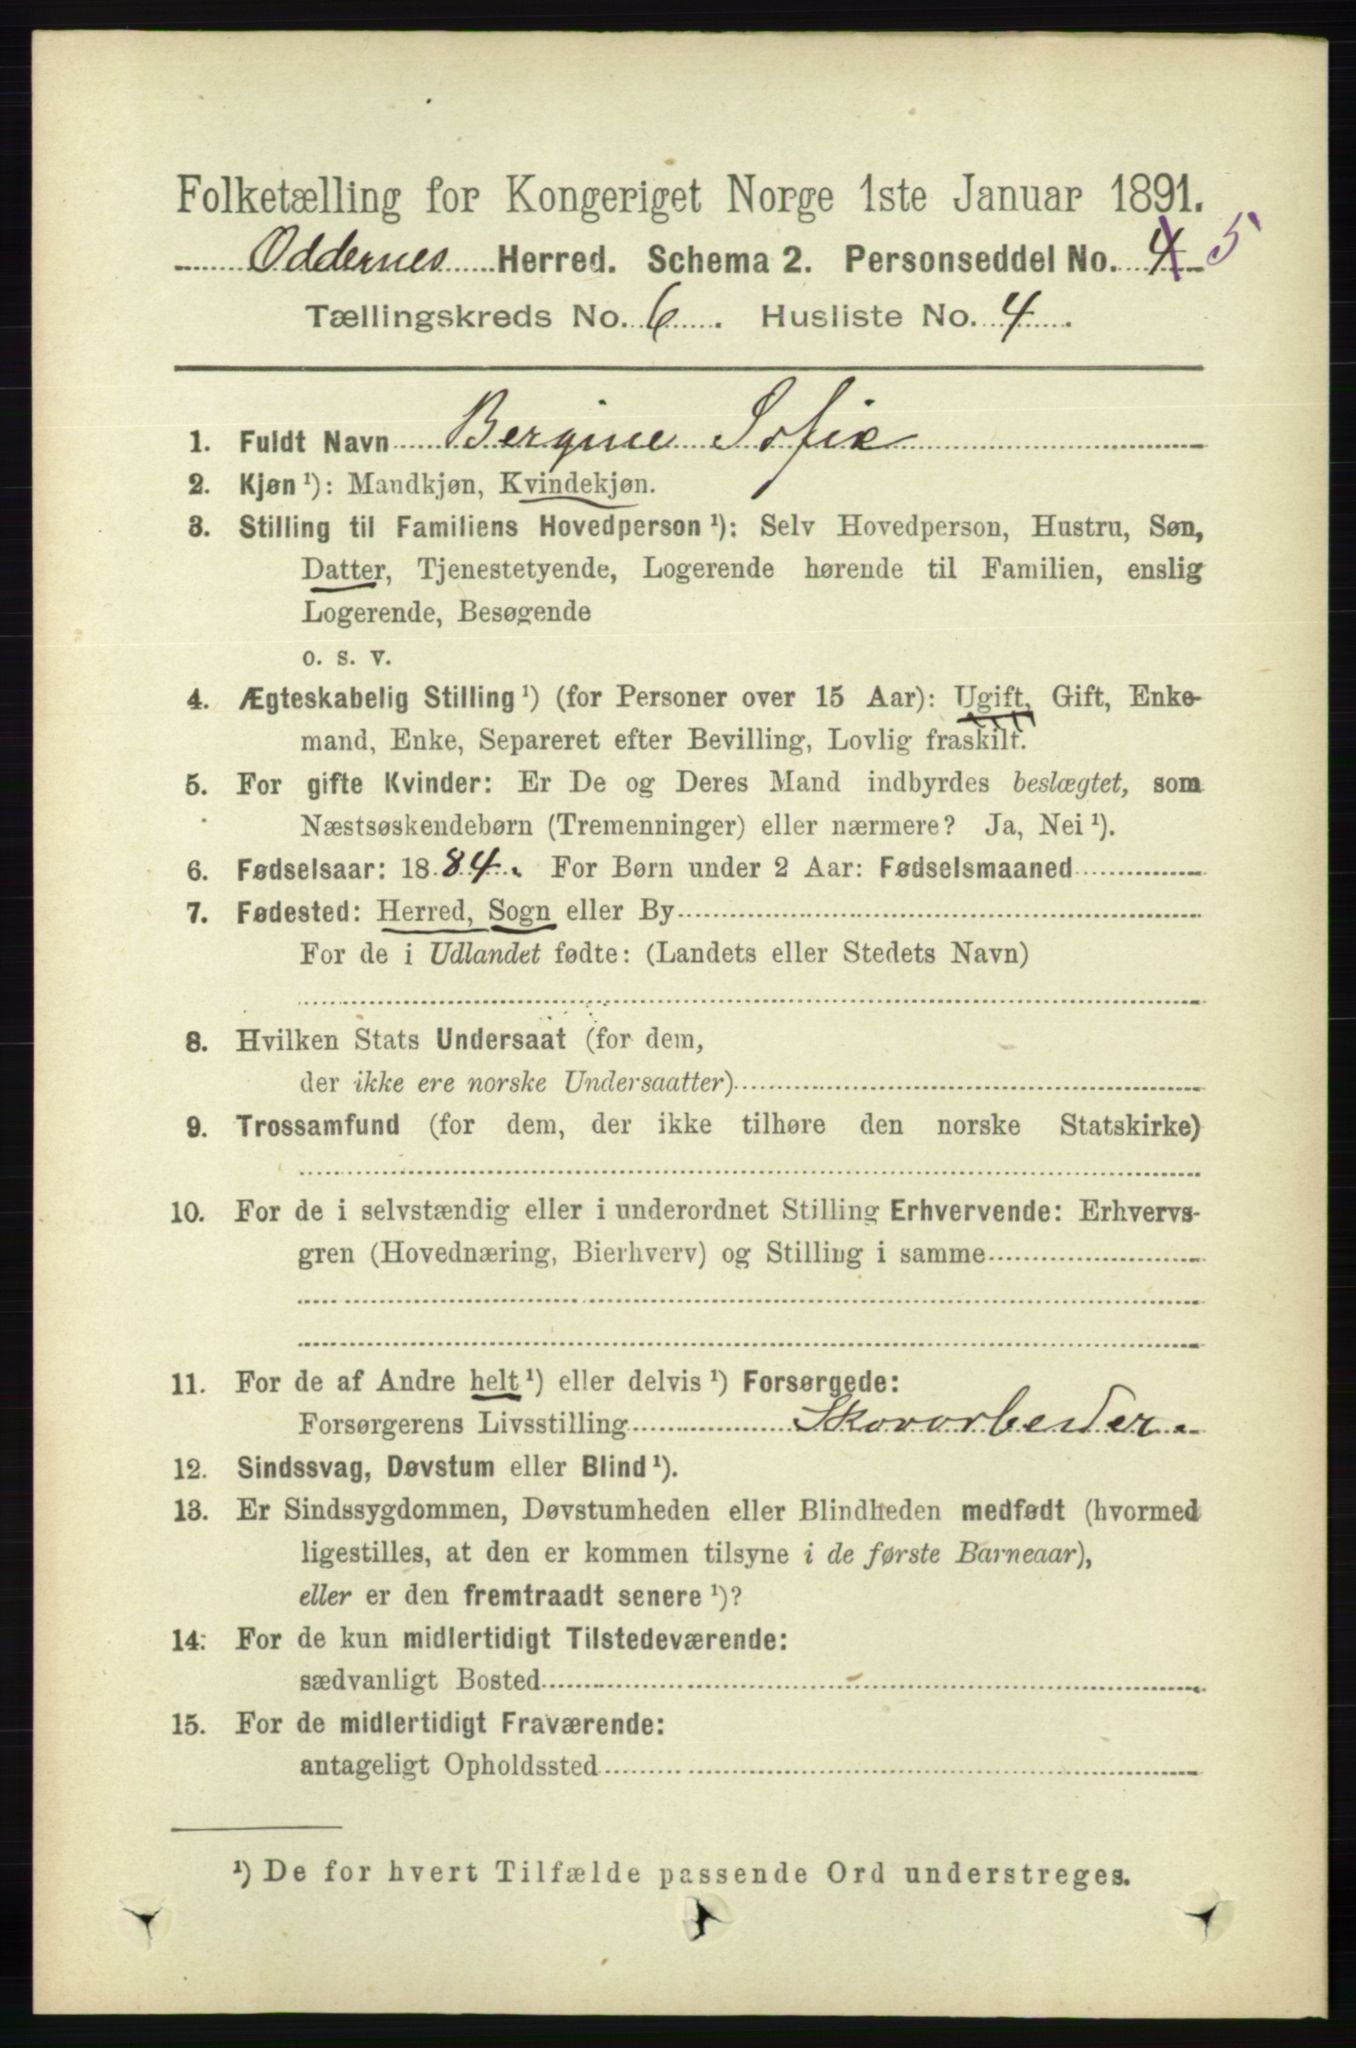 Folketælling for Kongeriget Norge 1ste Januar 1891.
Oddernes Herred. Schema 2. Personseddel No. 4 5
Tællingskreds No. 6. Husliste No. 4.
1. Fuldt Navn Bergine Sofie
2. Kjøn¹): Mandkjøn, Kvindekjøn.
3. Stilling til Familiens Hovedperson¹): Selv Hovedperson, Hustru, Søn,
Datter, Tjenestetyende, Logerende hørende til Familien, enslig
Logerende, Besøgende
o. s. v.
4. Ægteskabelig Stilling¹) (for Personer over 15 Aar): Ugift, Gift, Enke-
mand, Enke, Separeret efter Bevilling, Lovlig fraskilt.
5. For gifte Kvinder: Er De og Deres Mand indbyrdes beslægtet, som
Næstsøskendebørn (Tremenninger) eller nærmere? Ja, Nei¹).
6. Fødselsaar: 1884. For Børn under 2 Aar: Fødselsmaaned
7. Fødested: Herred, Sogn eller By
For de i Udlandet fødte: (Landets eller Stedets Navn)
8. Hvilken Stats Undersaat (for dem,
der ikke ere norske Undersaatter)
9. Trossamfund (for dem, der ikke tilhøre den norske Statskirke)
10. For de i selvstændig eller i underordnet Stilling Erhvervende: Erhvervs-
gren (Hovednæring, Bierhverv) og Stilling i samme
11. For de af Andre helt¹) eller delvis¹) Forsørgede:
Forsørgerens Livsstilling Skovarbeider.
12. Sindssvag, Døvstum eller Blind¹).
13. Er Sindssygdommen, Døvstumheden eller Blindheden medfødt (hvormed
ligestilles, at den er kommen tilsyne i de første Barneaar),
eller er den fremtraadt senere¹)?
14. For de kun midlertidigt Tilstedeværende:
sædvanligt Bosted
15. For de midlertidigt Fraværende:
antageligt Opholdssted
¹) De for hvert Tilfælde passende Ord understreges.